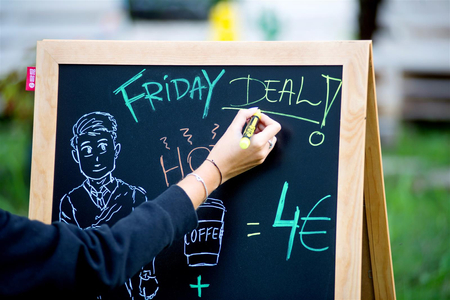 FRIDAY DEAL!
HO
= 4€
COFFEE
+